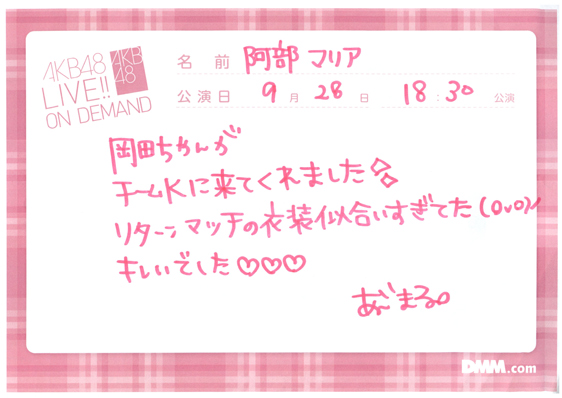 AKB48
LIVE!!
ON DEMAND
AKB
48
名 前 阿部 マリア
公演日 9月 28日 18:30 公演
岡田ちゃんが
チームKに来てくれました
リターンマッチの衣装似合いすぎてた(OvO)ノ
キレいでした♡♡♡
あべまる。
DMM.com